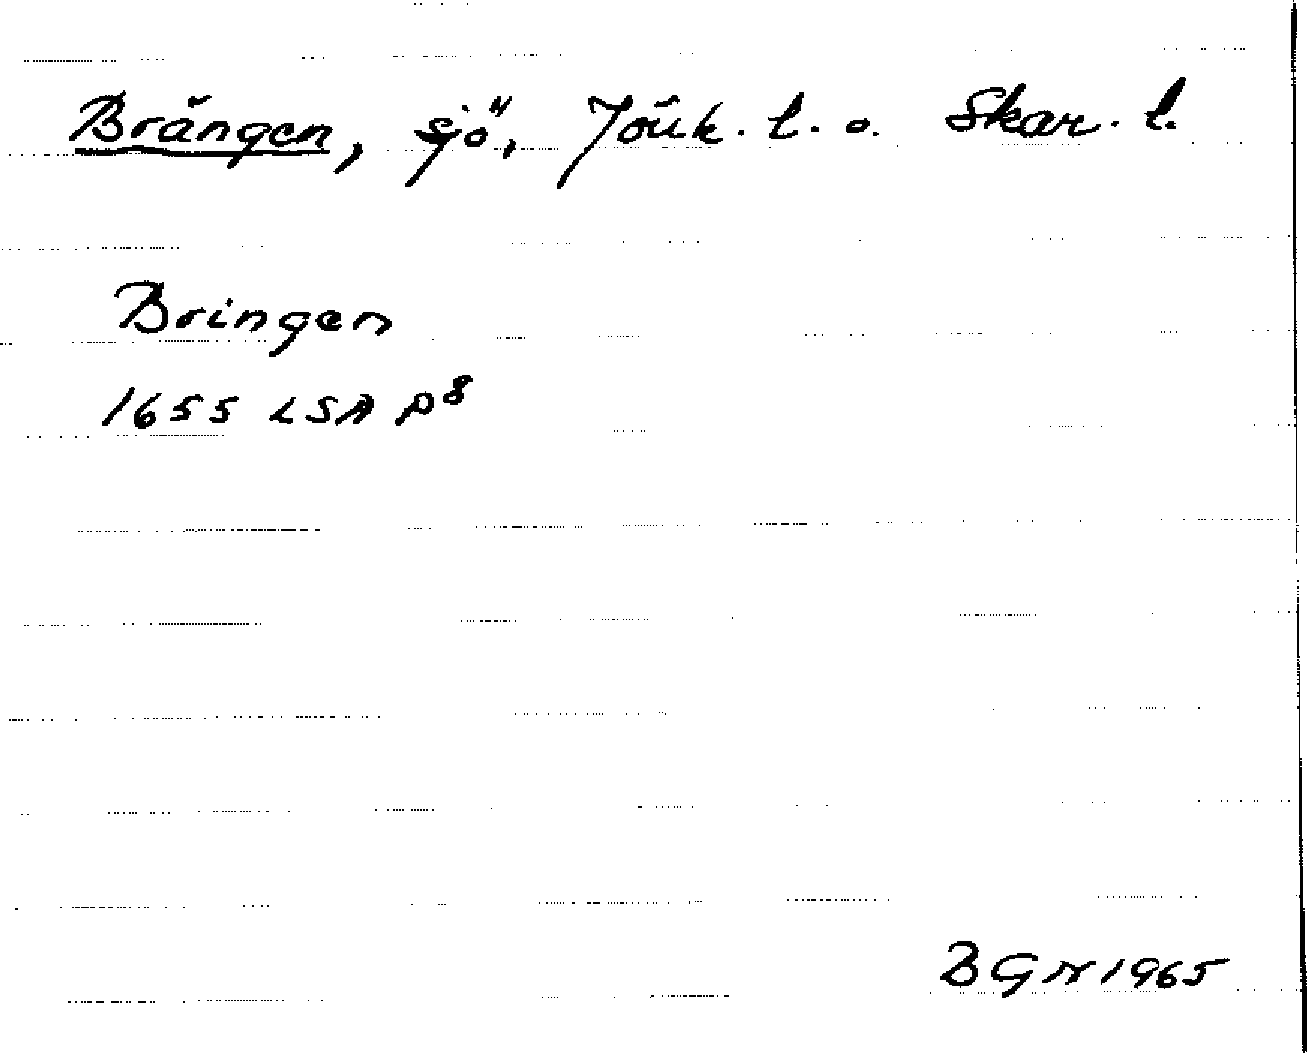 Brängen, sjö, Jönk. l. o. Skar. l.
Bringen
1655 LSA P8
BGN 1965